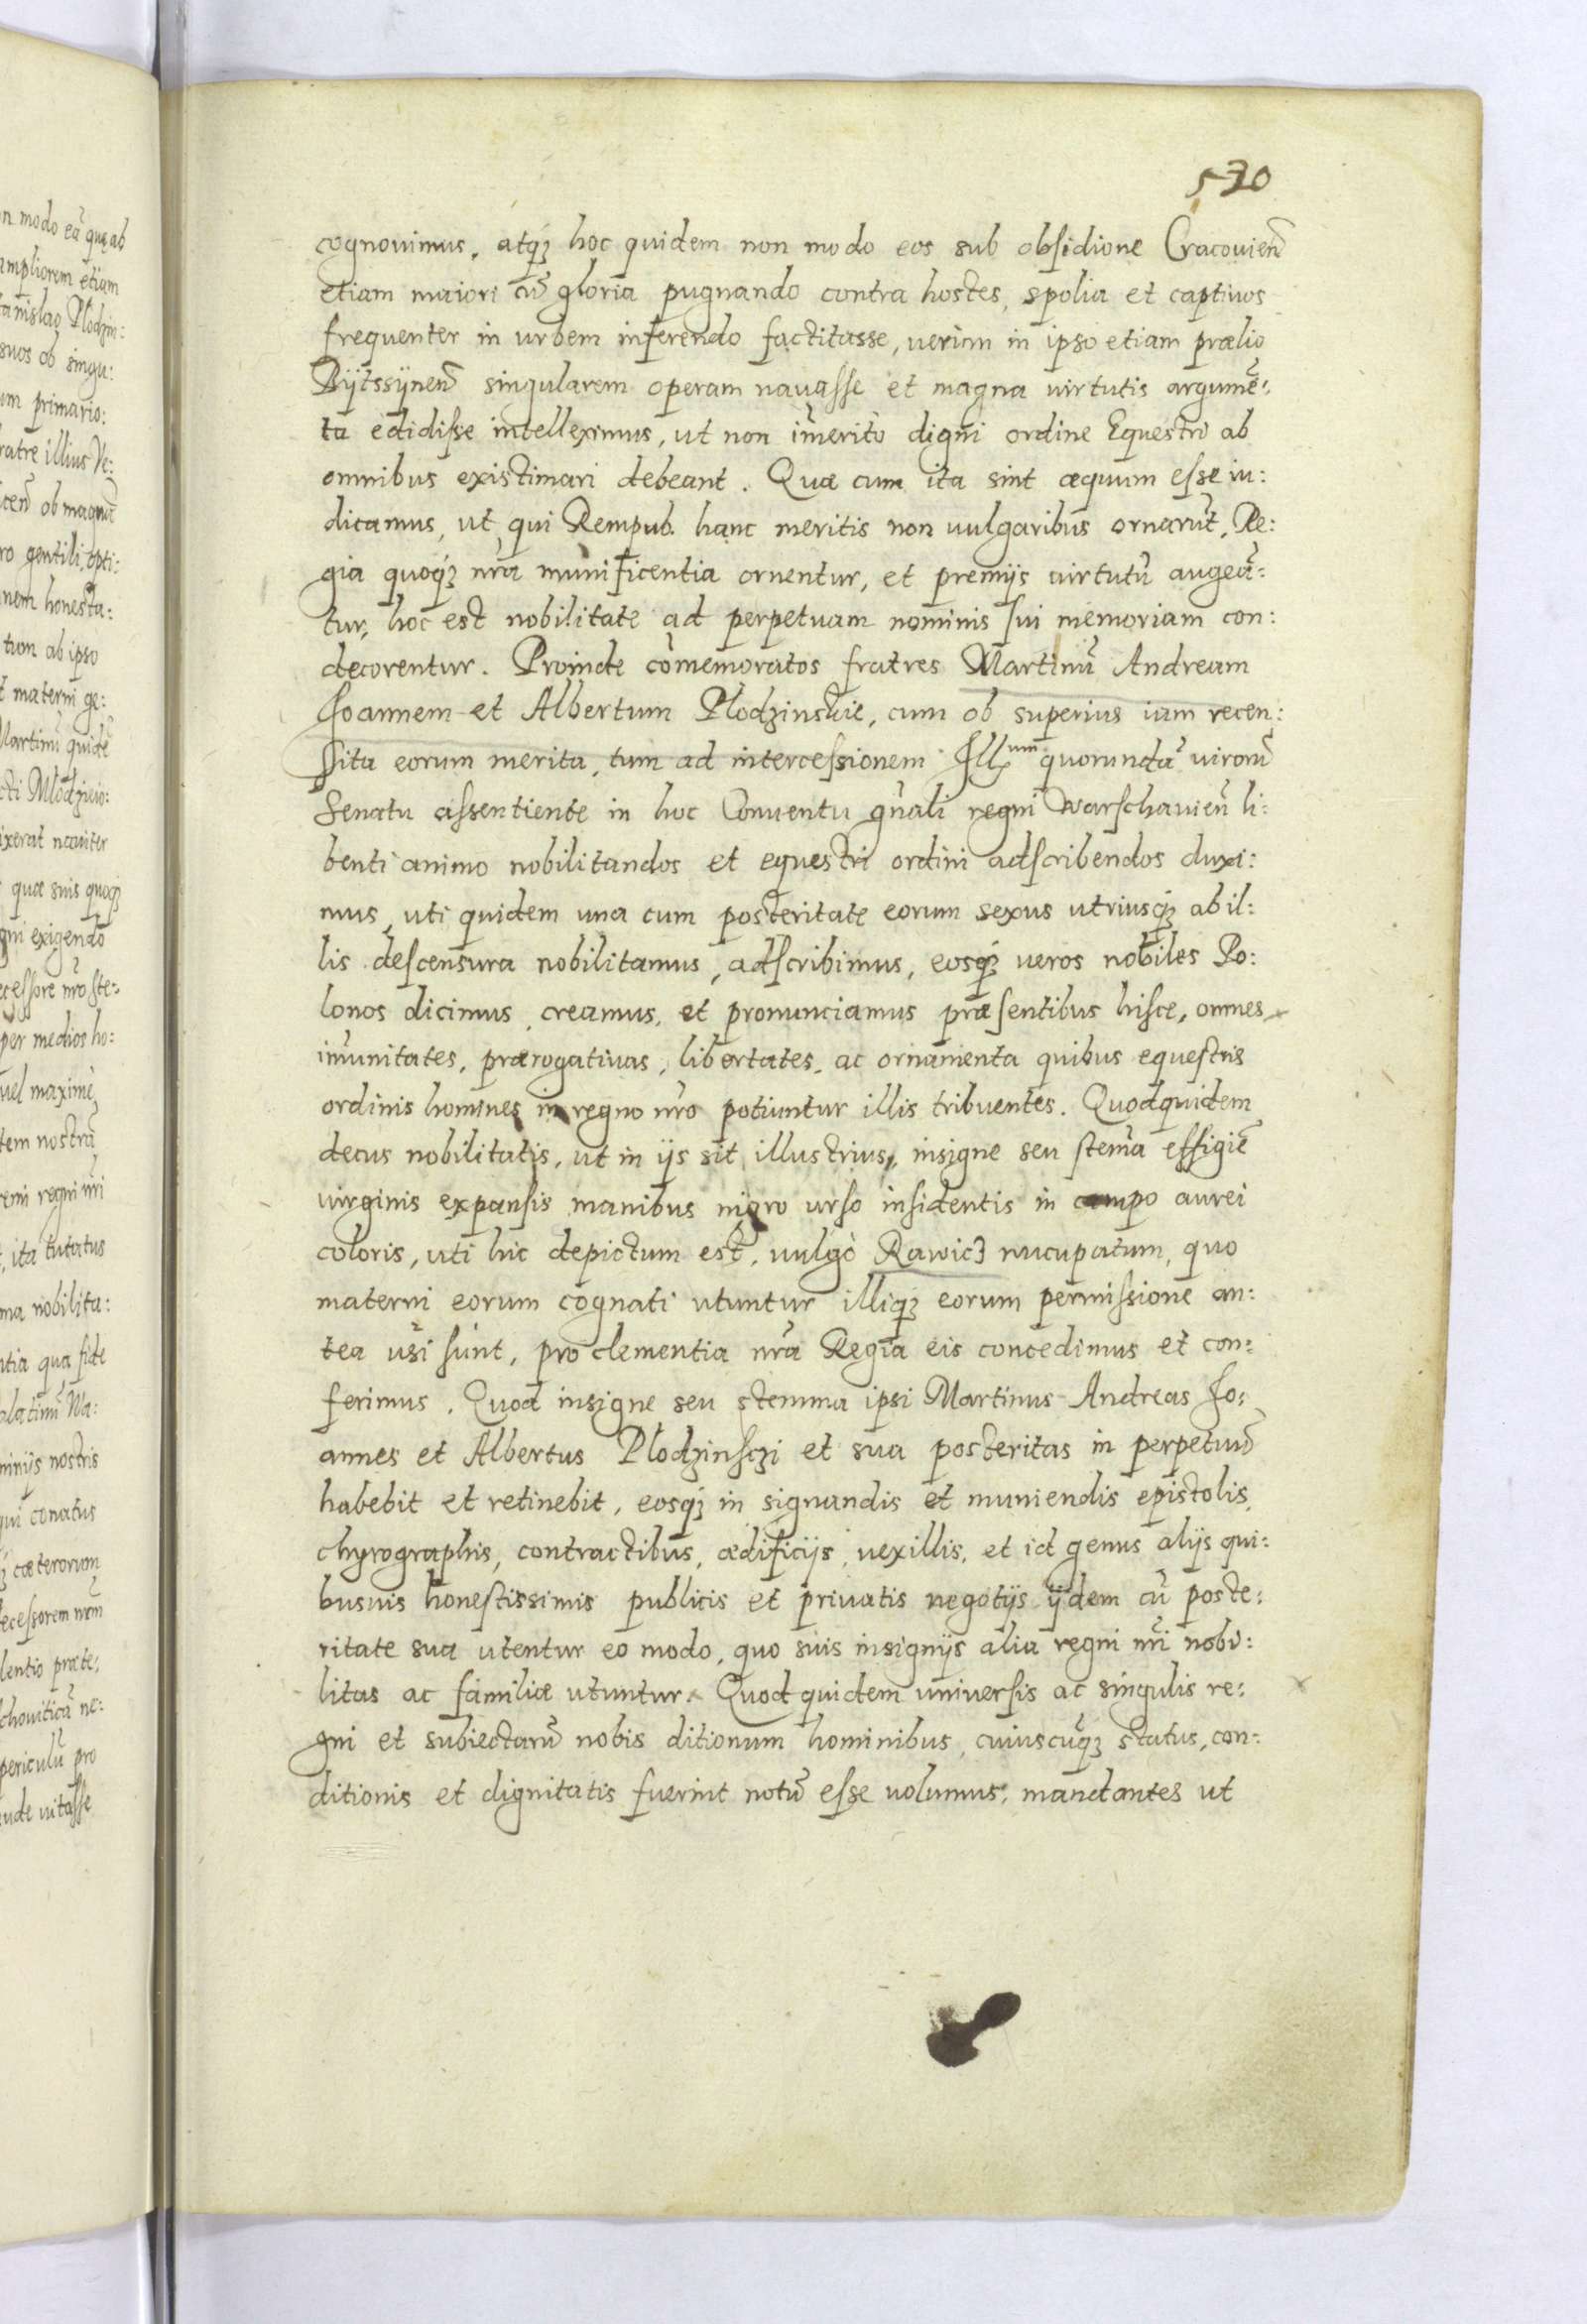 530
cognouimus, atq₃ hoc quidem non modo eos sub obsidione Cracouien̄
etiam maiori cū gloria pugnando contra hostes, spolia et captiuos
frequenter in urbem inferendo factitasse, uerùm in ipso etiam prælio
Bÿtssÿnen̄ singularem operam nauasse et magna uirtutis argumē:
ta edidisse intelleximus, ut non im̄erito digni ordine Equestri ab
omnibus existimari debeant. Quæ cum ita sint æquum esse iu:
dicamus, ut qui Rempub. hanc meritis non uulgaribus ornarūt, Re:
gia quoq₃ nr̄a munificentia ornentur, et premijs uirtutū augeā:
tur, hoc est nobilitate ad perpetuam nominis sui memoriam con:
decorentur. Proinde com̄emoratos fratres Martinū Andream
Joannem et Albertum Plodzinskie, cum ob superius iam recen:
sita eorum merita, tum ad intercessionem Illum quorundā uirorū
Senatu assentiente in hoc Conuentu gn̄ali regni Warschauien̄ li:
benti animo nobilitandos et equestri ordini adscribendos duxi:
mus, uti quidem una cum posteritate eorum sexus utriusq₃ ab il:
lis descensura nobilitamus, adscribimus, eosq₃ ueros nobiles Po:
lonos dicimus, creamus, et pronunciamus præsentibus hisce, omnes
im̄unitates, prærogatiuas, libertates, ac ornamenta quibus equestris
ordinis homines in regno nr̄o potiuntur illis tribuentes. Quodquidem
decus nobilitatis, ut in ijs sit illustrius, insigne seu stem̄a effigiē
uirginis expansis manibus nigro urso insidentis in campo aurei
coloris, uti hic depictum est, uulgò Rawicz nucupatum, quo
materni eorum cognati utuntur illiq₃ eorum permissione an:
tea usi sunt, pro clementia nr̄a Regia eis concedimus et con:
ferimus. Quod insigne seu stemma ipsi Martinus Andreas Jo:
annes et Albertus Plodzinsczi et sua posteritas in perpetuū
habebit et retinebit, eosq₃ in signandis et muniendis epistolis,
chyrographis, contractibus, ædificijs, uexillis, et id genus alijs qui:
busuis honestissimis publicis et priuatis negotijs ijdem cū poste:
ritate sua utentur eo modo, quo suis insignijs alia regni nr̄i nobi:
litas ac familiæ utuntur. Quod quidem uniuersis ac singulis re:
gni et subiectarū nobis ditionum hominibus, cuiuscūq₃ status, con:
ditionis et dignitatis fuerint notū esse uolumus, mandantes ut